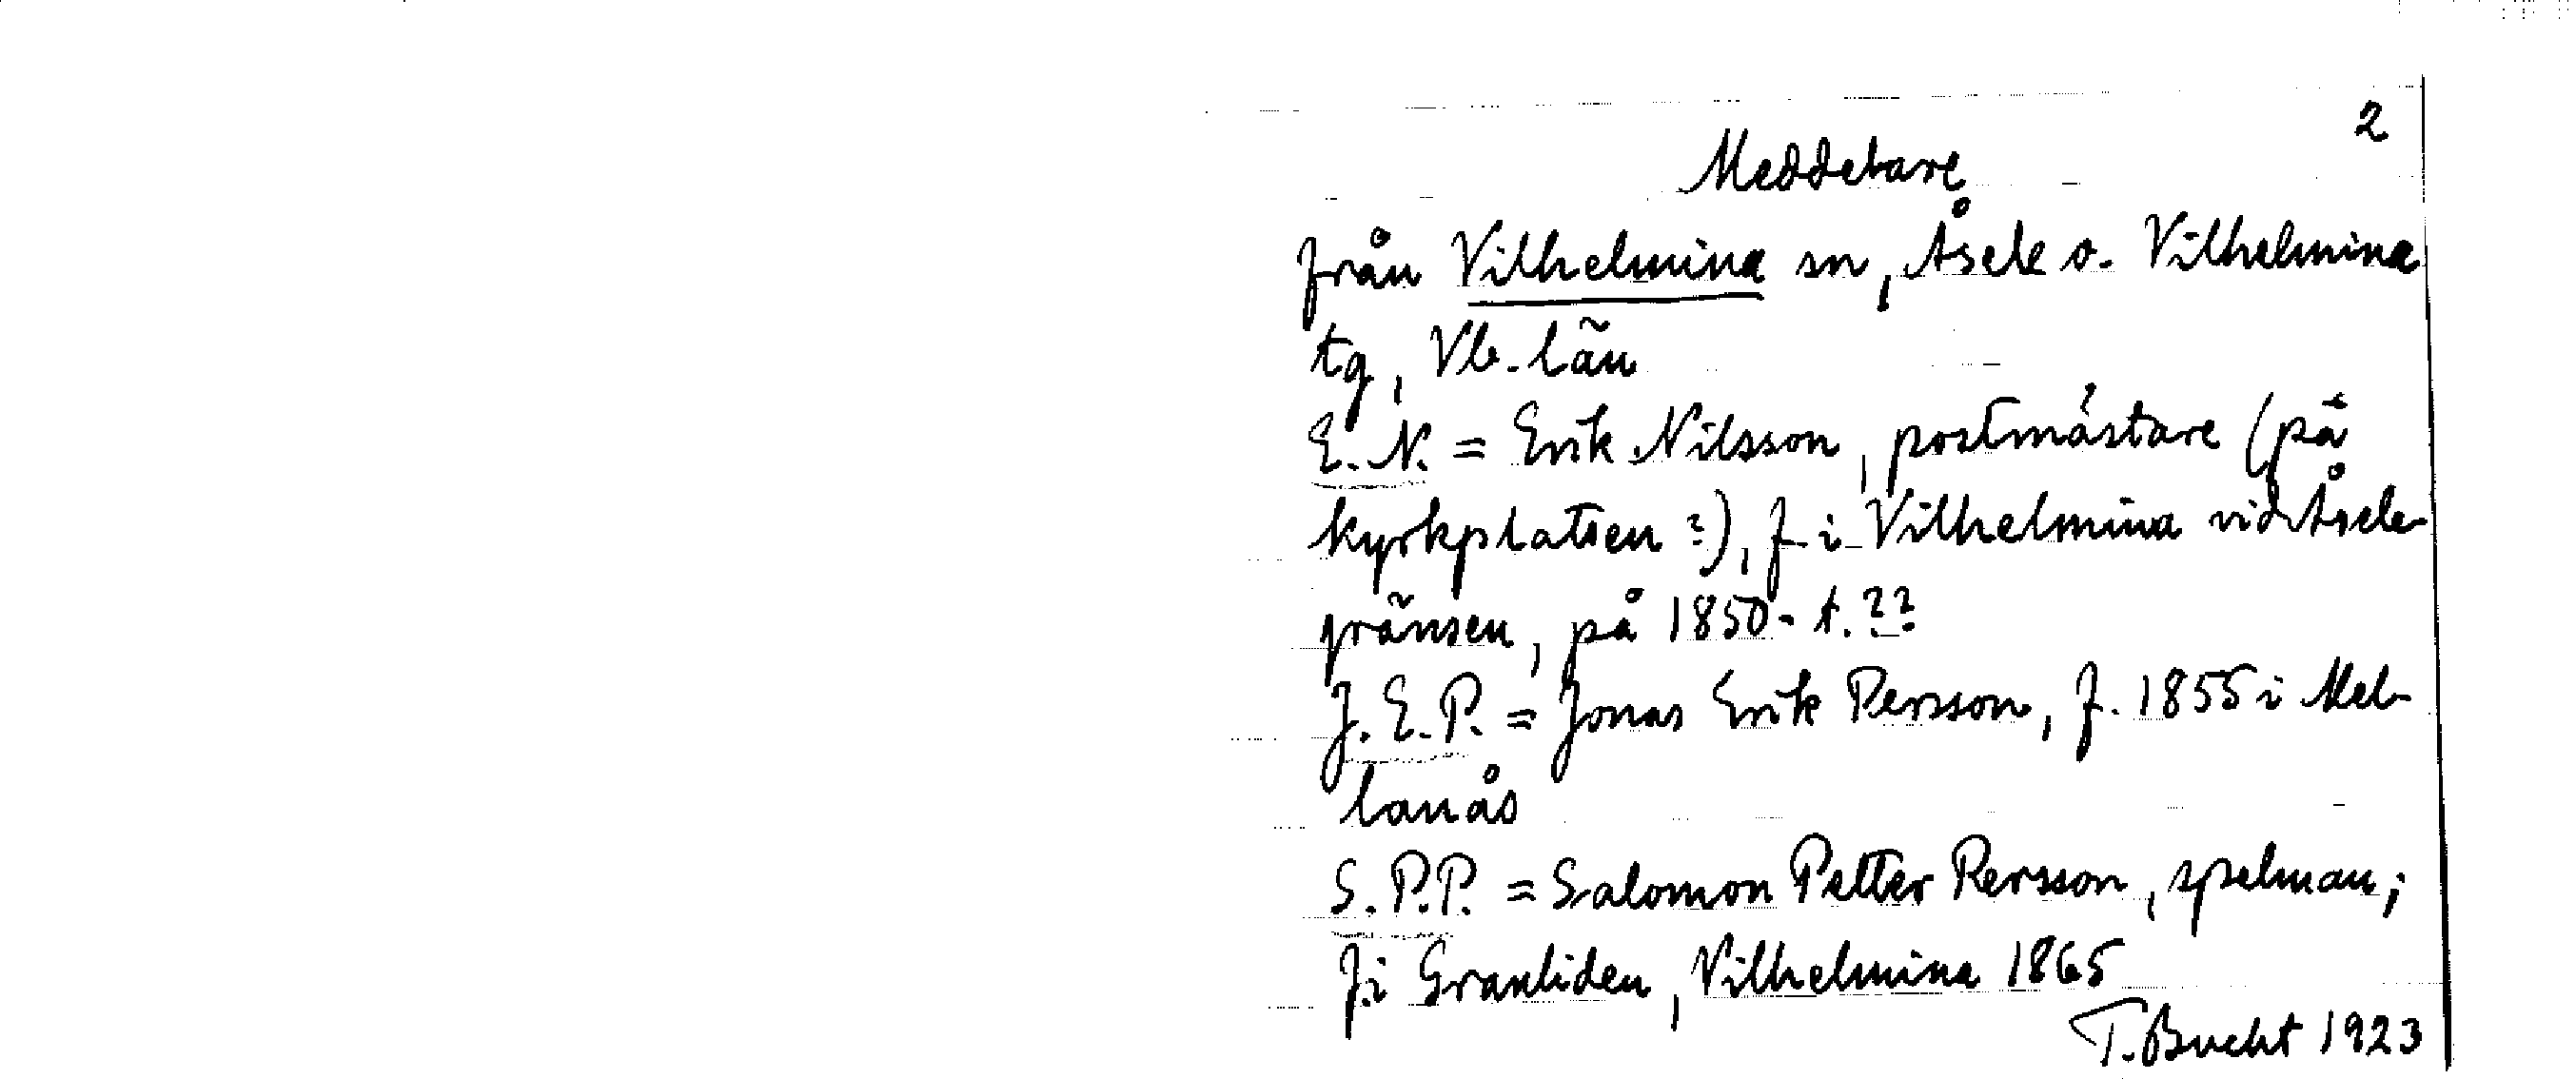 2
Meddelare
från Vilhelmina sn, Åsele o. Vilhelmina
tg, Vb. län
E. N. = Erik Nilsson, postmästare (på
kyrkplatsen?), f. i Vilhelmina vid Åsele-
gränsen, på 1850-t.??
J. E. P. = Jonas Erik Persson, f. 1855 i Mel-
lanås
S. P. P. = Salomon Petter Persson, spelman;
f. i Granliden, Vilhelmina 1865
T. Bucht 1923